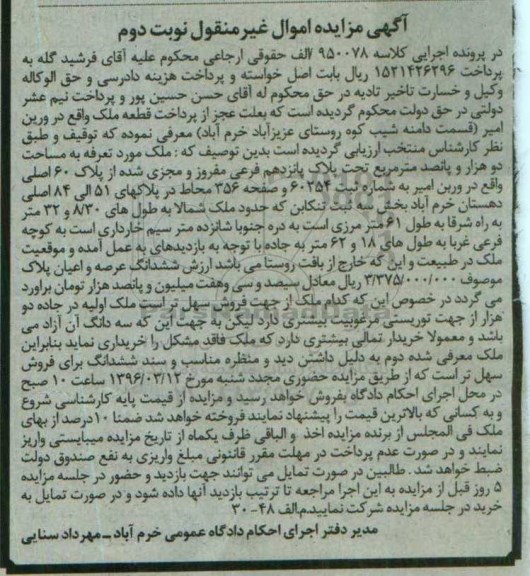 آگهی مزایده اموال غیرمنقول نوبت دوم
در پرونده اجرایی کلاسه ۹۵۰۰۷۸ /الف حقوقی ارجاعی محکوم علیه آقای فرشید گله به
پرداخت ۱۵۲۱۴۲۶۲۹۶ ریال بابت اصل خواسته و پرداخت هزینه دادرسی و حق الوکاله
وکیل و خسارت تاخیر تادیه در حق محکوم له آقای حسن حسین پور و پرداخت نیم عشر
دولتی در حق دولت محکوم گردیده است که بعلت عجز از پرداخت قطعه ملک واقع در وربن
امیر (قسمت دامنه شیب کوه روستای عزیزآباد خرم آباد) معرفی نموده که توقیف و طبق
نظر کارشناس منتخب ارزیابی گردیده است بدین توصیف که : ملک مورد تعرفه به مساحت
دو هزار و پانصد مترمربع تحت پلاک پانزدهم فرعی مفروز و مجزی شده از پلاک ۶۰ اصلی
واقع در وربن امیر به شماره ثبت ۶۰۲۵۴ و صفحه ۳۵۶ محاط در پلاکهای ۵۱ الی ۸۴ اصلی
دهستان خرم آباد بخش ثبت تنکابن که حدود ملک شمالا به طول های ۸/۳۰ و ۳۲ متر
به راه شرقا به طول ۶۱ متر مرزی است به دره جنوبا شانزده متر سیم خارداری است به کوچه
فرعی غربا به طول های ۱۸ و ۶۲ متر به جاده با توجه به بازدیدهای به عمل آمده و موقعیت
ملک در طبیعت و این که خارج از بافت روستا می باشد ارزش ششدانگ عرصه و اعیان پلاک
موصوف ۳/۳۷۵/۰۰۰/۰۰۰ ریال معادل سیصد و سی وهفت میلیون و پانصد هزار تومان براورد
می گردد در خصوص این که کدام ملک از جهت فروش سهل تر است ملک اولیه در جاده دو
هزار از جهت توریستی مرغوبیت بیشتری دارد لیکن به جهت این که سه دانگ آن آزاد می
باشد و معمولا خریدار تمالی بیشتری دارد که ملک فاقد مشکل را خریداری نماید بنابراین
ملک معرفی شده دوم به دلیل داشتن دید و منظره مناسب و سند ششدانگ برای فروش
سهل تر است که از طریق مزایده حضوری مجدد شنبه مورخ ۱۳۹۶/۰۳/۱۲ ساعت ۱۰ صبح
در محل اجرای احکام دادگاه بفروش خواهد رسید و مزایده از قیمت پایه کارشناسی شروع
و به کسانی که بالاترین قیمت را پیشنهاد نمایند فروخته خواهد شد ضمنا ۱۰درصد از بهای
ملک فی المجلس از برنده مزایده اخذ و الباقی ظرف یکماه از تاریخ مزایده میبایستی واریز
نمایند و در صورت عدم پرداخت در مهلت مقرر قانونی مبلغ واریزی به نفع صندوق دولت
ضبط خواهد شد . طالبین در صورت تمایل می توانند جهت بازدید و حضور در جلسه مزایده
۵ روز قبل از مزایده به این اجرا مراجعه تا ترتیب بازدید آنها داده شود و در صورت تمایل به
خرید در جلسه مزایده شرکت نمایید.م/الف ۴۸-۳۰
مدیر دفتر اجرای احکام دادگاه عمومی خرم آباد _ مهرداد سنایی